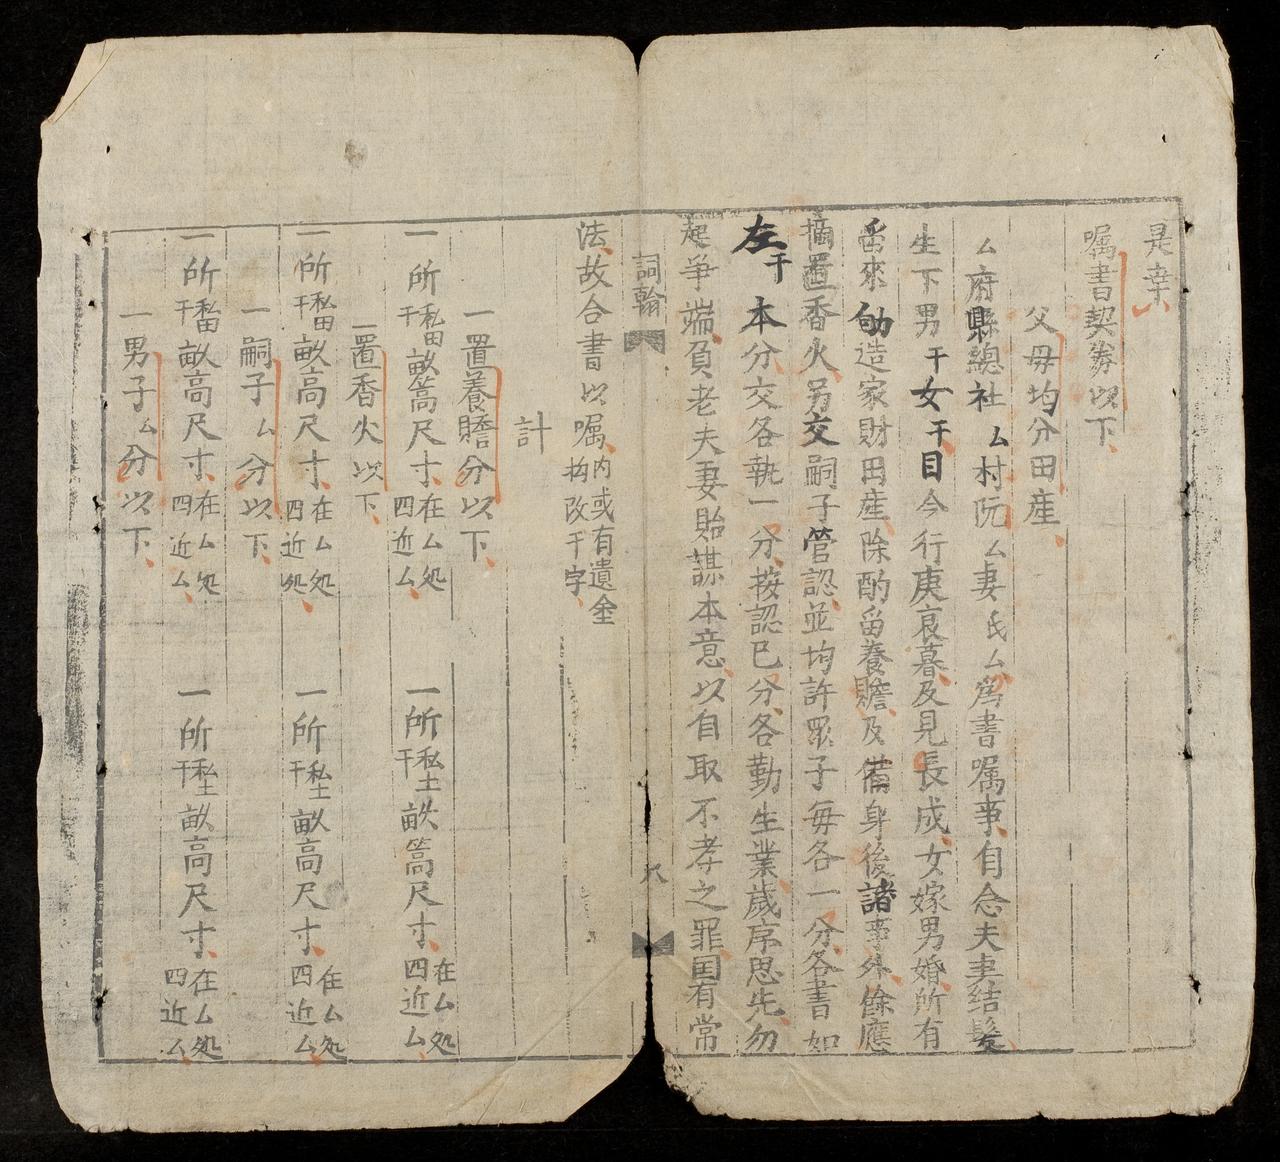 是幸
嘱書契券以下
父母均分田産
厶府縣總社厶村阮厶妻氏厶爲書嘱事自念夫妻結髮
生下男干女干目今行庚哀暮及見長成女嫁男婚所有
畨來𪟽造家財田産除酌畄養贍及備身後諸事外餘應
摘置香火另交嗣子管認並均許眾子每各一分各書如
左干本分交各執一分按認已分各勤生業歲序思先勿
起爭端負老夫妻貽謀本意以自取不孝之罪囯有常
詞翰
八
法故合書以嘱内或有遺金
拘改干字
計
一置養贍分以下
一所私田干畝高尺寸在厶処四近厶
一所私土干畝高尺寸在厶処四近厶
一置香火以下
一所私田干畝高尺寸在厶処四近処
一所私土干畝高尺寸在厶処四近厶
一嗣子厶分以下
一所私田干畝高尺寸在厶処四近厶
一所私土干畝高尺寸在厶処四近厶
一男子厶分以下